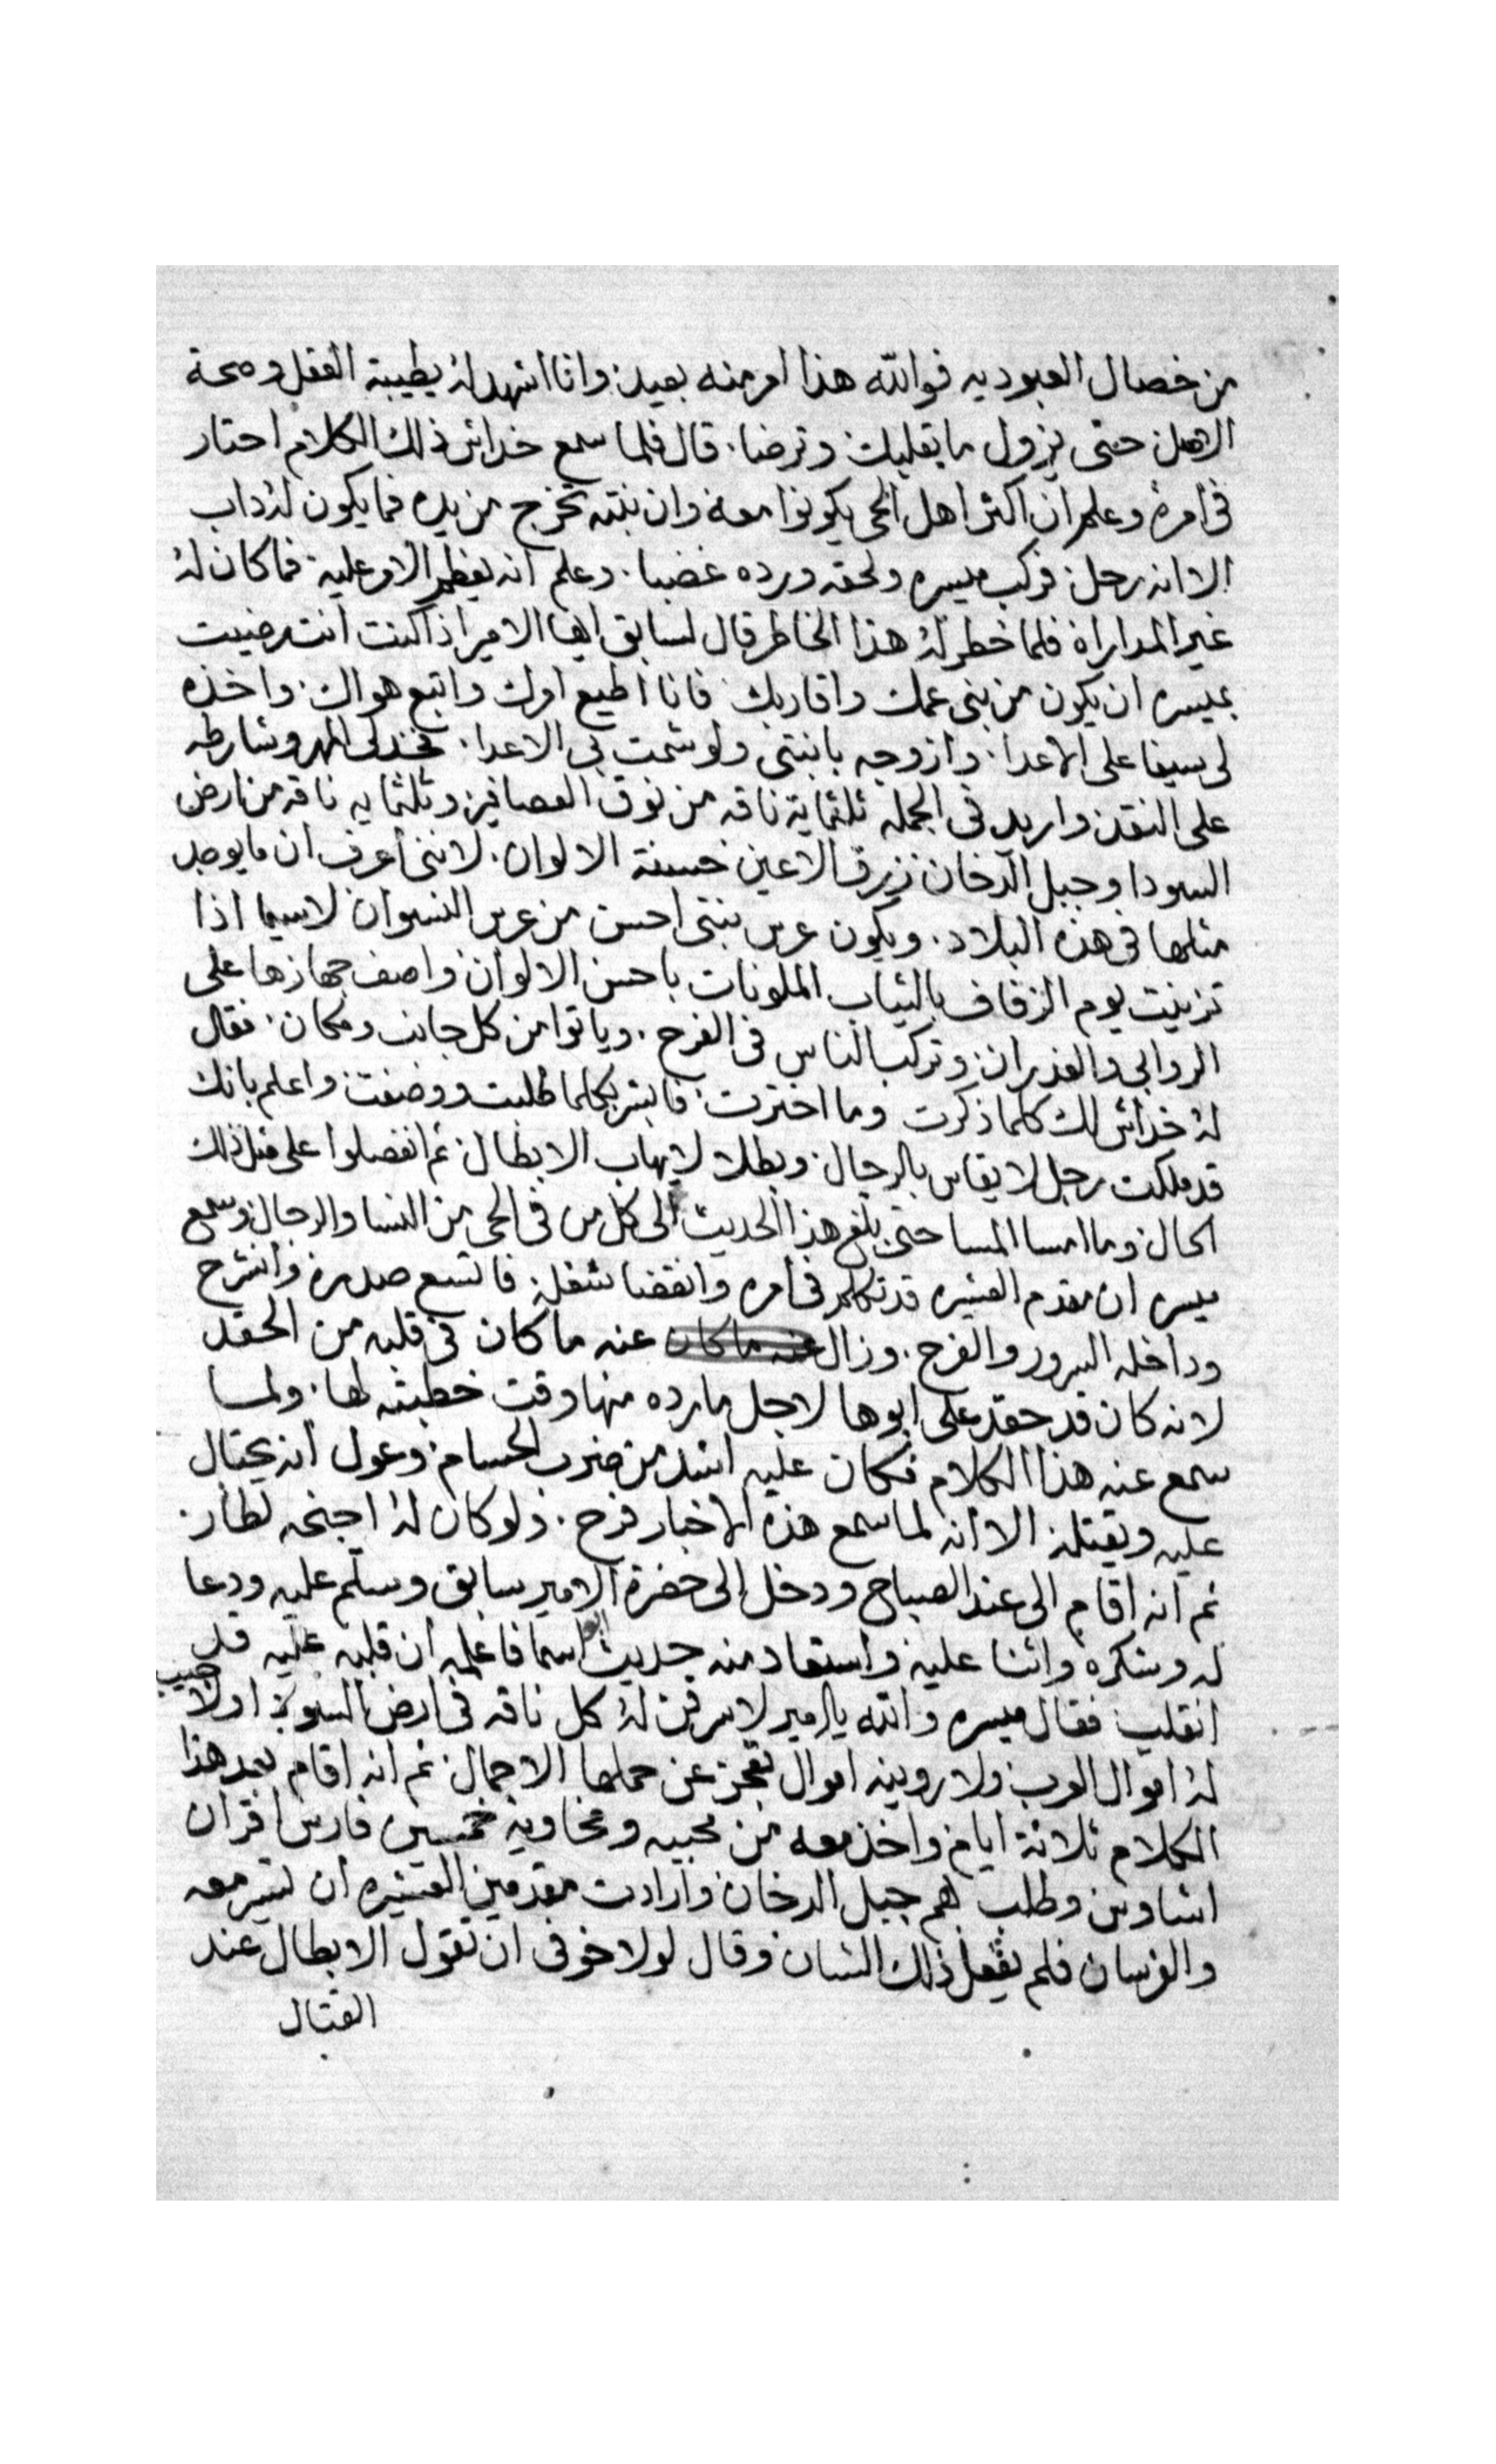 من خصال العبوديه فوالله هذا امر منه بعيد وانا اشهد له بطيبة العقل وصحة
الاصل حتى يزول ما بقلبك وترضا. قال فلما سمع خداش ذلك الكلام احتار
فى امره وعلم ان اكثر اهل الحى يكونوا معه وان بنته تخرج من يده فما يكون له داب
الا انه رحل فركب ميسره ولحقه ورده غضبا. وعلم انه يعظم الامر عليه فما كان له
غير المداراة فلما خطر له هذا الخاطر قال لسابق ايها الامير اذا كنت انت رضيت
بميسره ان يكون من بنى عمك واقاربك فانا اطيع امرك واتبع هواك. واخذه
لى سيفا على الاعدا. وازوجه بابنتى ولو شمت بى الاعدا. فخذ لى المهر وشارطه
على النقد واريد فى الجمله ثلثماية ناقه من نوق العصافير وثلثمايه ناقه من ارض
السودا وجبل الدخان زرق الاعين حسنة الالوان. لاننى أعرف ان ما يوجد
مثلها فى هذه البلاد. ويكون عرس بنتى احسن من عرس النسوان لاسيما اذا
تزينت يوم الزفاف بالثياب الملونات باحسن الالوان واصف جهازها على
الروابى والغدران وتركب الناس فى الفرح. وياتوا من كل جانب ومكان. فقال
له خداش لك كلما ذكرت وما اخترت. فابشر بكلما طلبت ووصفت واعلم بانك
قد ملكت رجل لا يقاس بالرجال. وبطلا لا يهاب الابطال ثم انفصلوا على مثل ذلك
الحال وما امسا المسا حتى بلغ هذا الحديث الى كل من فى الحى من النسا والرجال وسمع
ميسره ان مقدم العشيره قد تكلم فى امره وانقضا شغله فاتسع صدره وانشرح
وداخله السرور والفرح. وزال عنه ما كان عنه ما كان فى قلبه من الحقد
لانه كان قد حقد على ابوها لاجل ما رده منها وقت خطبته لها. ولما
سمع عنه هذا الكلام فكان عليه اشد من ضرب الحسام وعول انه يحتال
عليه ويقتله الا انه لما سمع هذه الاخبار فرح. ولو كان له اجنحه لطار.
ثم انه اقام الى عند الصباح ودخل الى حضرة الامير سابق وسلم عليه ودعا
له وشكره واثنا عليه واستعاد منه حديث اسما فاعلمه ان قلبه عليه قد
انقلب فقال ميسره والله يا امير لاسوقن له كل ناقه فى ارض السودا ولا
له اموال العرب ولا روينه اموال تعجز عن حملها الاجمال ثم انه اقام بعد هذا
الكلام ثلاثة ايام واخذ معه من محبيه ونخاويه خمسين فارس اقران
اشاوس وطلب بهم جبل الدخان وارادت مقدمين العشيره ان تسير معه
والفرسان فلم يفعل ذلك الشان وقال لولا خوفى ان تقول الابطال عند
القتال